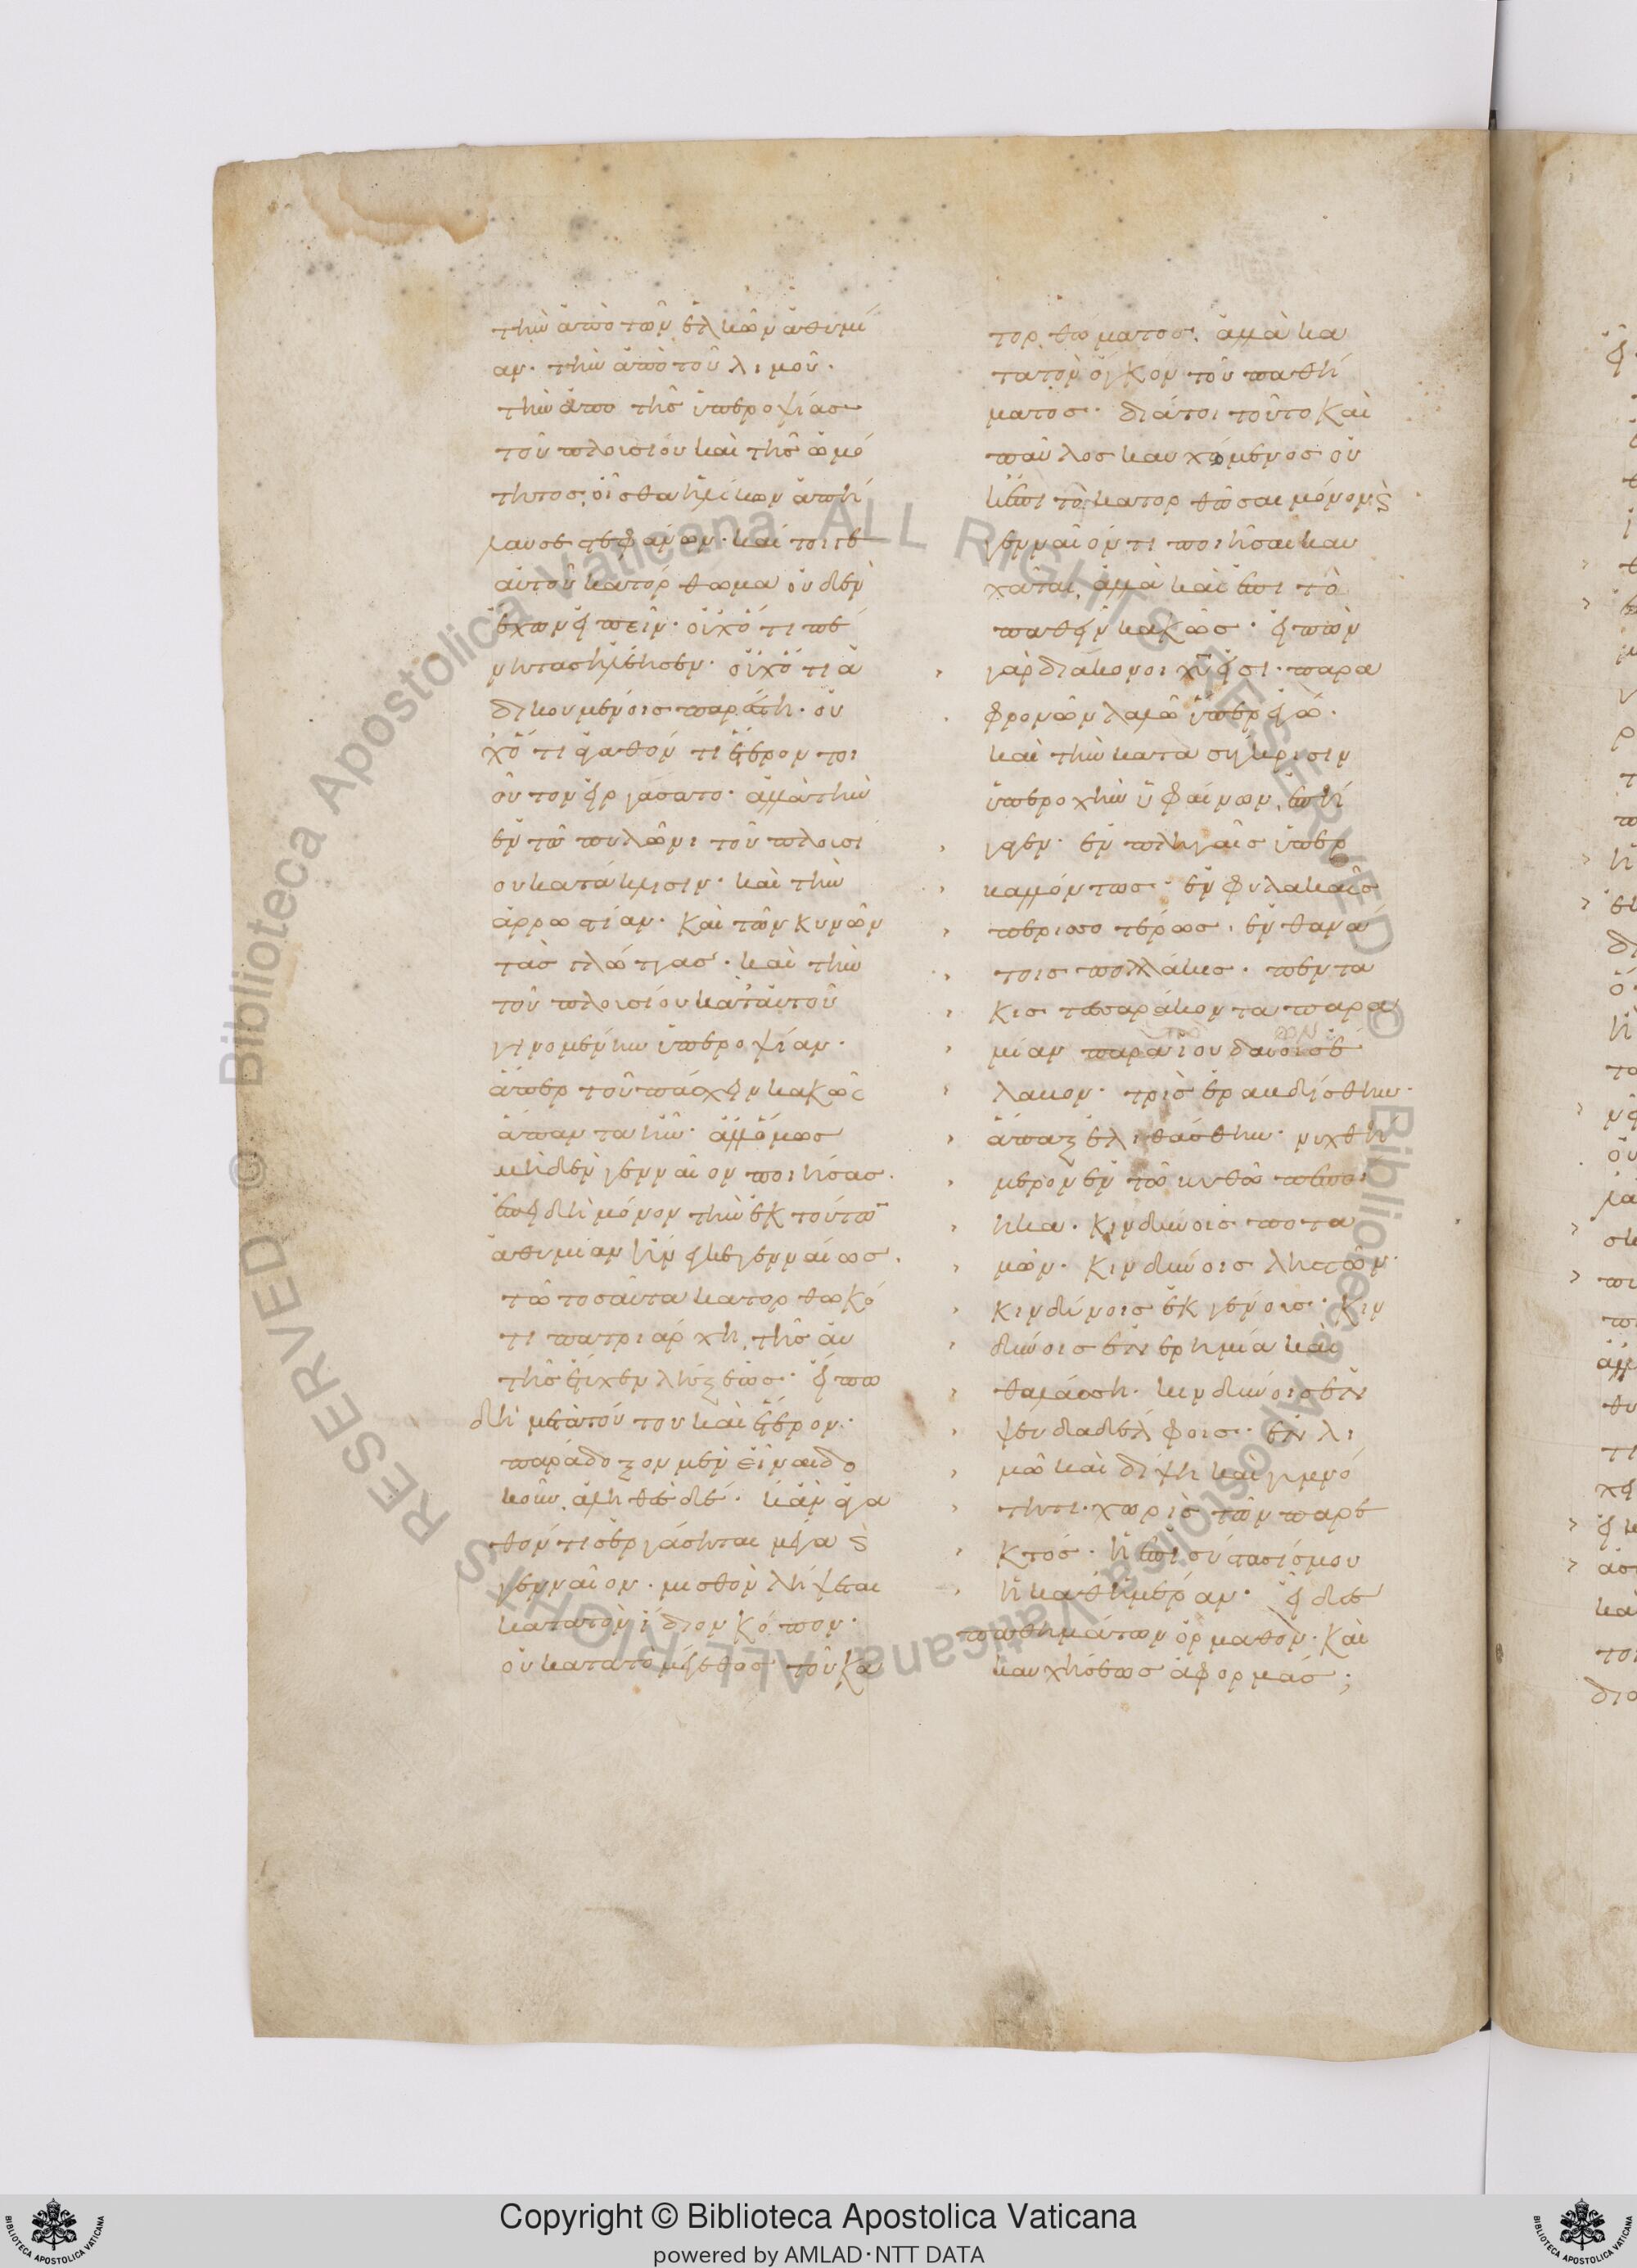 τὴν ἀπὸ τῶν ἑλκῶν ἀθυμί
αν· τὴν ἀπὸ τοῦ λιμοῦ·
τὴν ἀπὸ τῆς ὑπεροψίας
τοῦ πλουσίου καὶ τῆς ὠμό
τητος, οἶσθα ἡλίκων ἀπή
λαυσε στεφάνων· καί τοι γε
αὐτοῦ κατόρθωμα οὐδὲν
ἔχων εἰπεῖν· οὐχ ὅτι πέ
νητας ἠλέησεν· οὐχ ὅτι ἀ
δικουμένοις παρέστη· οὐ
χ ὅτι ἀγαθόν τι ἕτερον τοι
οῦτον εἰργάσατο· ἀλλὰ τὴν
ἐν τῷ πυλῶνι τοῦ πλουσί
ου κατάκλισιν· καὶ τὴν
ἀρρωστίαν· καὶ τῶν κυνῶν
τὰς γλώττας· καὶ τὴν
τοῦ πλουσίου κατ' αὐτοῦ
γινομένην ὑπεροψίαν·
ἅπερ τοῦ πάσχειν κακῶς
ἅπαντα ἦν· ἀλλ' ὅμως
μηδὲν γενναῖον ποιήσας·
ἐπειδὴ μόνον τὴν ἐκ τούτων
ἀθυμίαν ἤνεγκε γενναίως·
τῷ τοσαῦτα κατορθωκό
τι πατριάρχῃ, τῆς αὐ
τῆς ἔτυχεν λήξεως· εἴπω
δὴ μετὰ τούτου καὶ ἕτερον·
παράδοξον μὲν εἶναι δο
κοῦν, ἀληθὲς δέ· κἂν ἀγα
θόν τις ἐργάσηται μέγα ϗ
γενναῖον· μισθὸν λήψεται
κατὰ τὸν ἴδιον κόπον·
οὐ κατὰ τὸ μέγεθος τοῦ κα
τορθώματος, ἀλλὰ κα
τὰ τὸν ὄγκον τοῦ παθή
ματος· διά τοι τοῦτο καὶ
παῦλος καυχώμενος οὐ
κ ἐπὶ τὸ κατορθῶσαι μόνον ϗ
γενναῖόν τι ποιῆσαι καυ
χᾶται, ἀλλὰ καὶ ἐπὶ τὸ
παθεῖν κακῶς· εἰπὼν
γὰρ διάκονοι χυ εἰσι· παρα
φρονῶν λαλῶ ὑπὲρ ἐγώ·
καὶ τὴν κατὰ σύγκρισιν
ὑπεροχὴν ὑφαίνων, ἐπή
γαγεν· ἐν πληγαῖς ὑπερ
βαλλόντως· ἐν φυλακαῖς
περισσοτέρως· ἐν θανά
τοις πολλάκις· πεντά
κις τεσσαράκοντα παρὰ
μίαν παρὰ ἰουδαίοις ἔ
λαβον· τρὶς ἐραβδίσθην·
ἅπαξ ἐλιθάσθην· νυχθή
μερον ἐν τῷ βυθῷ πεποί
ηκα· κινδύνοις ποτα
μῶν· κινδύνοις λῃστῶν·
κινδύνοις ἐκ γένους· κιν
δύνοις ἐν ἐρημίᾳ καὶ
θαλάσσῃ· κινδύνοις ἐν
ψευδαδέλφοις· ἐν λι
μῷ καὶ δίψῃ καὶ γυμνό
τητι· χωρὶς τῶν παρε
κτός· ἡ ἐπισύστασίς μου
ἡ καθ' ἡμέραν· εἶδες
παθημάτων ὁρμαθὸν· καὶ
καυχήσεως ἀφορμάς;
© Biblioteca Apostolica Vaticana ALL RIGHTS RESERVED
© Biblioteca Apostolica Vaticana ALL RIGHTS RESERVED
Copyright © Biblioteca Apostolica Vaticana
powered by AMLAD·NTT DATA